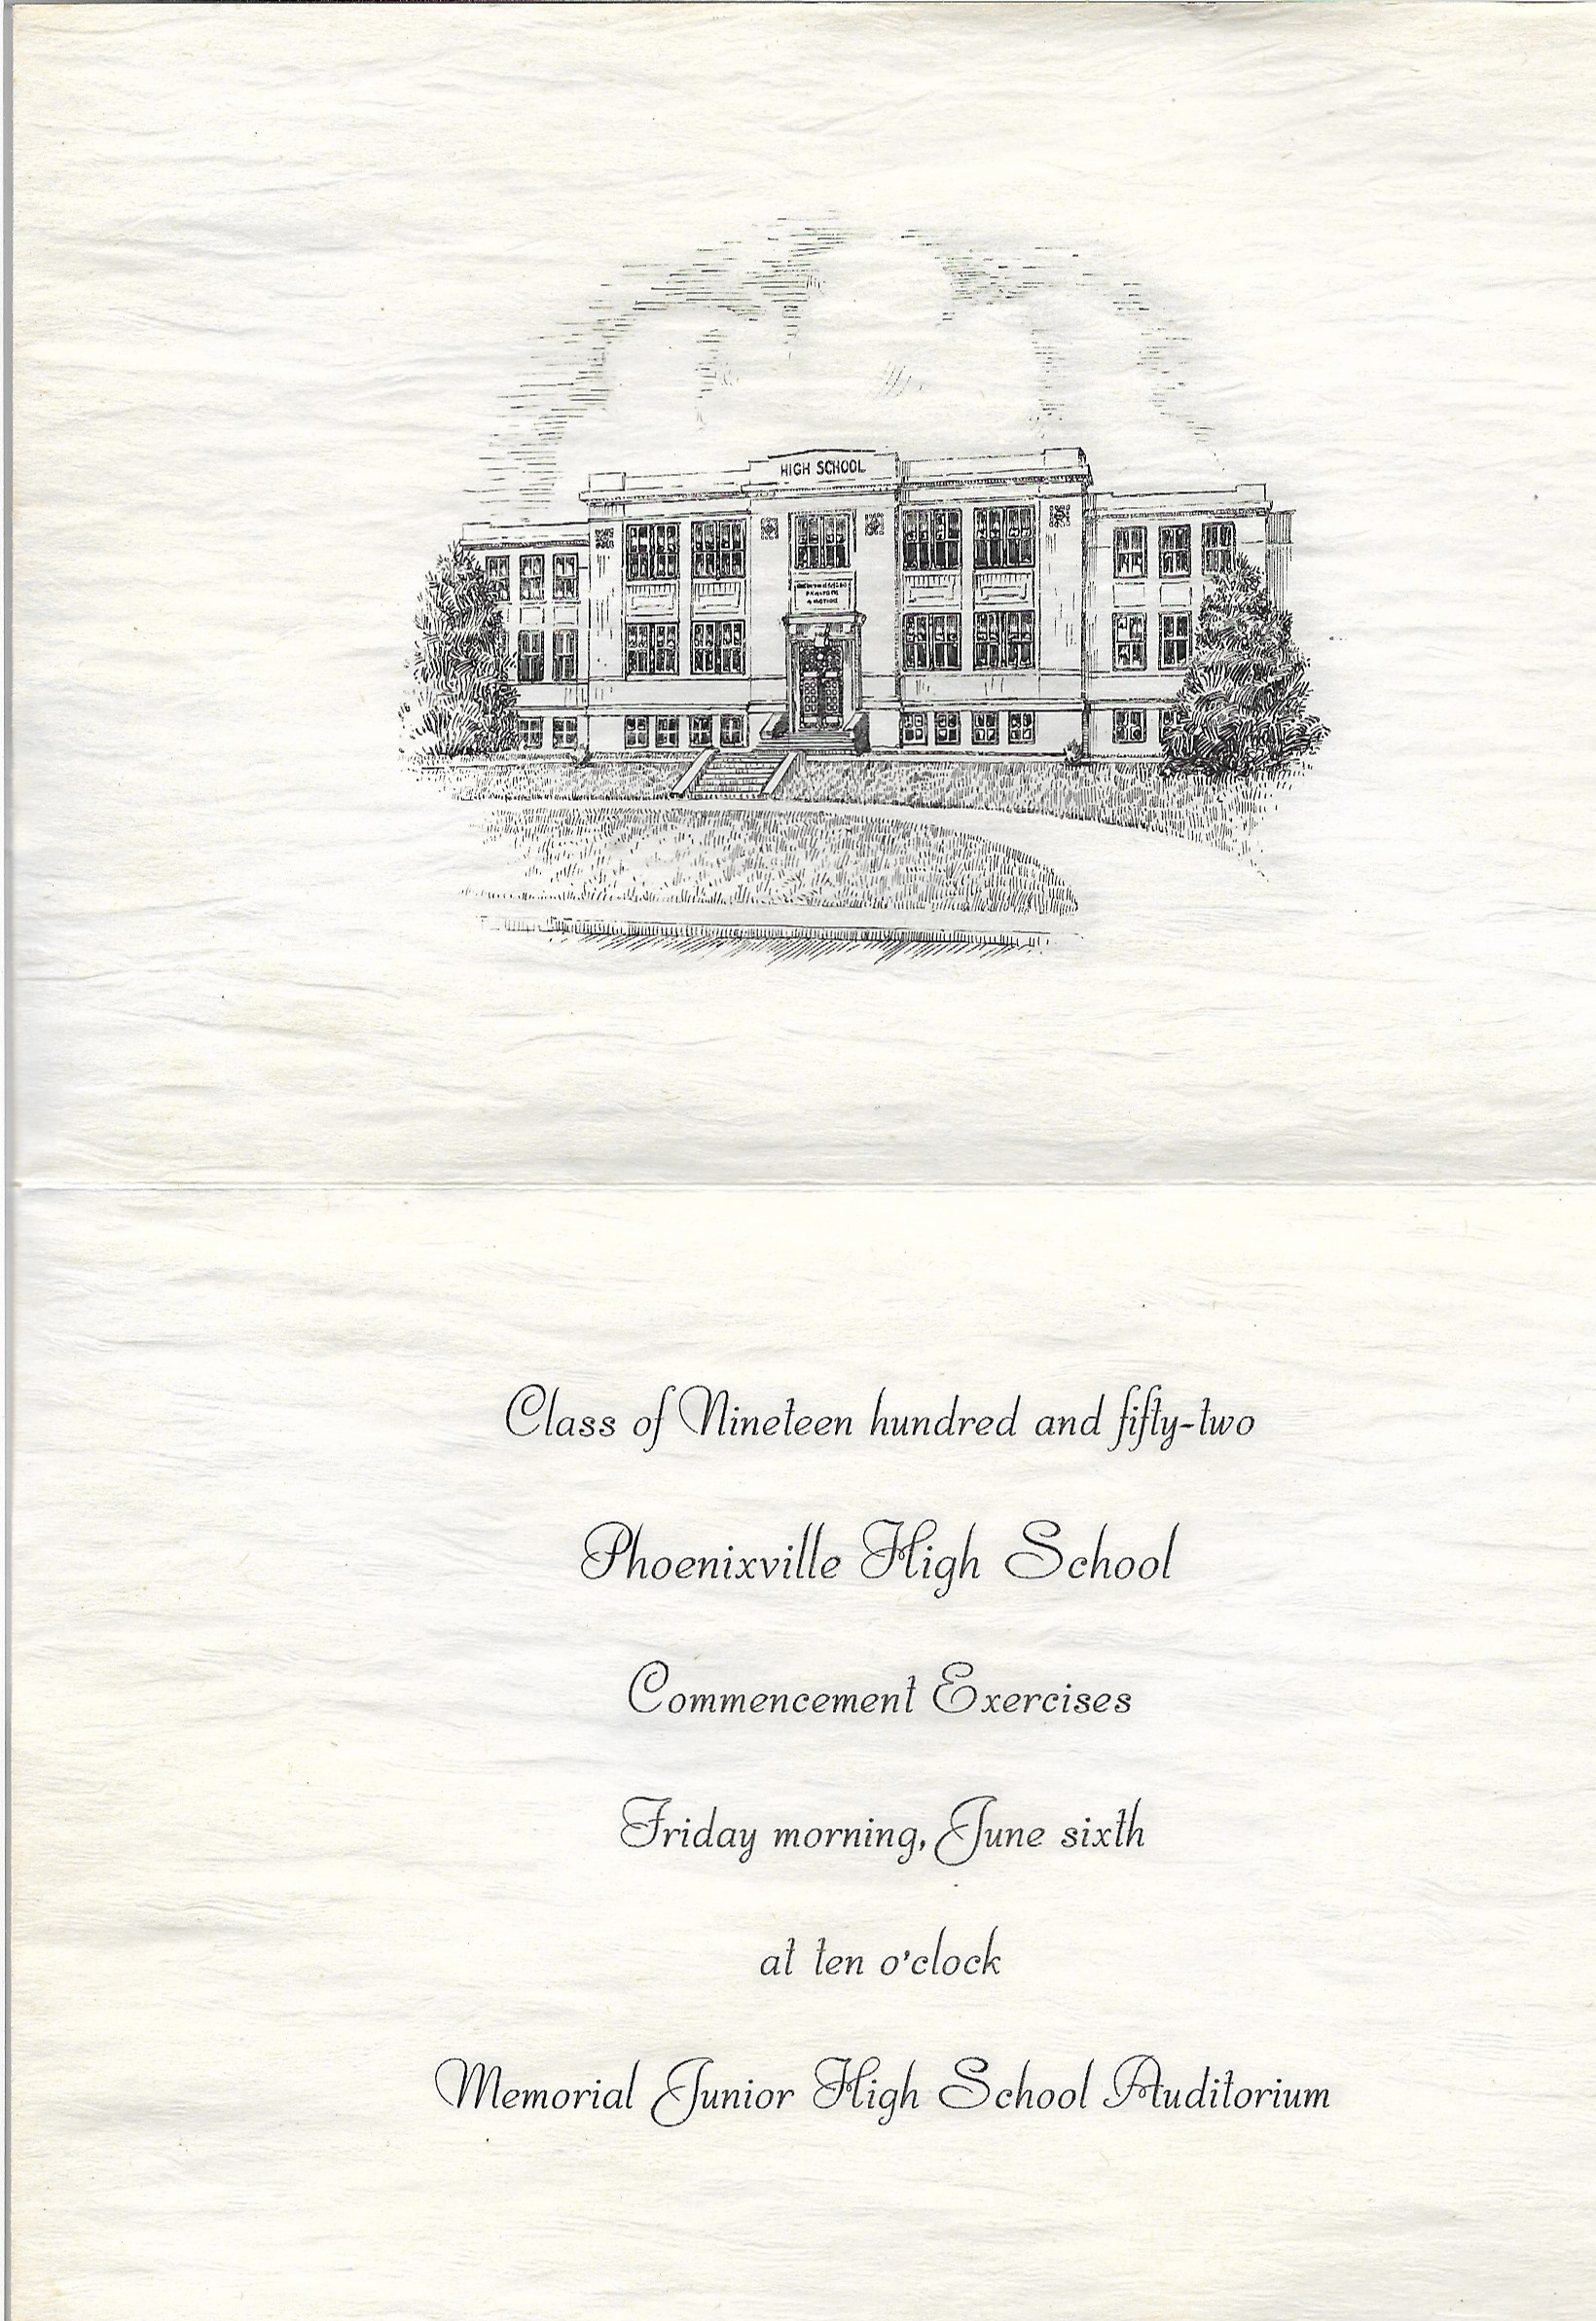 HIGH SCHOOL
Class of Nineteen hundred and fifty-two
Phoenixville High School
Commencement Exercises
Friday morning, June sixth
at ten o'clock
Memorial Junior High School Auditorium